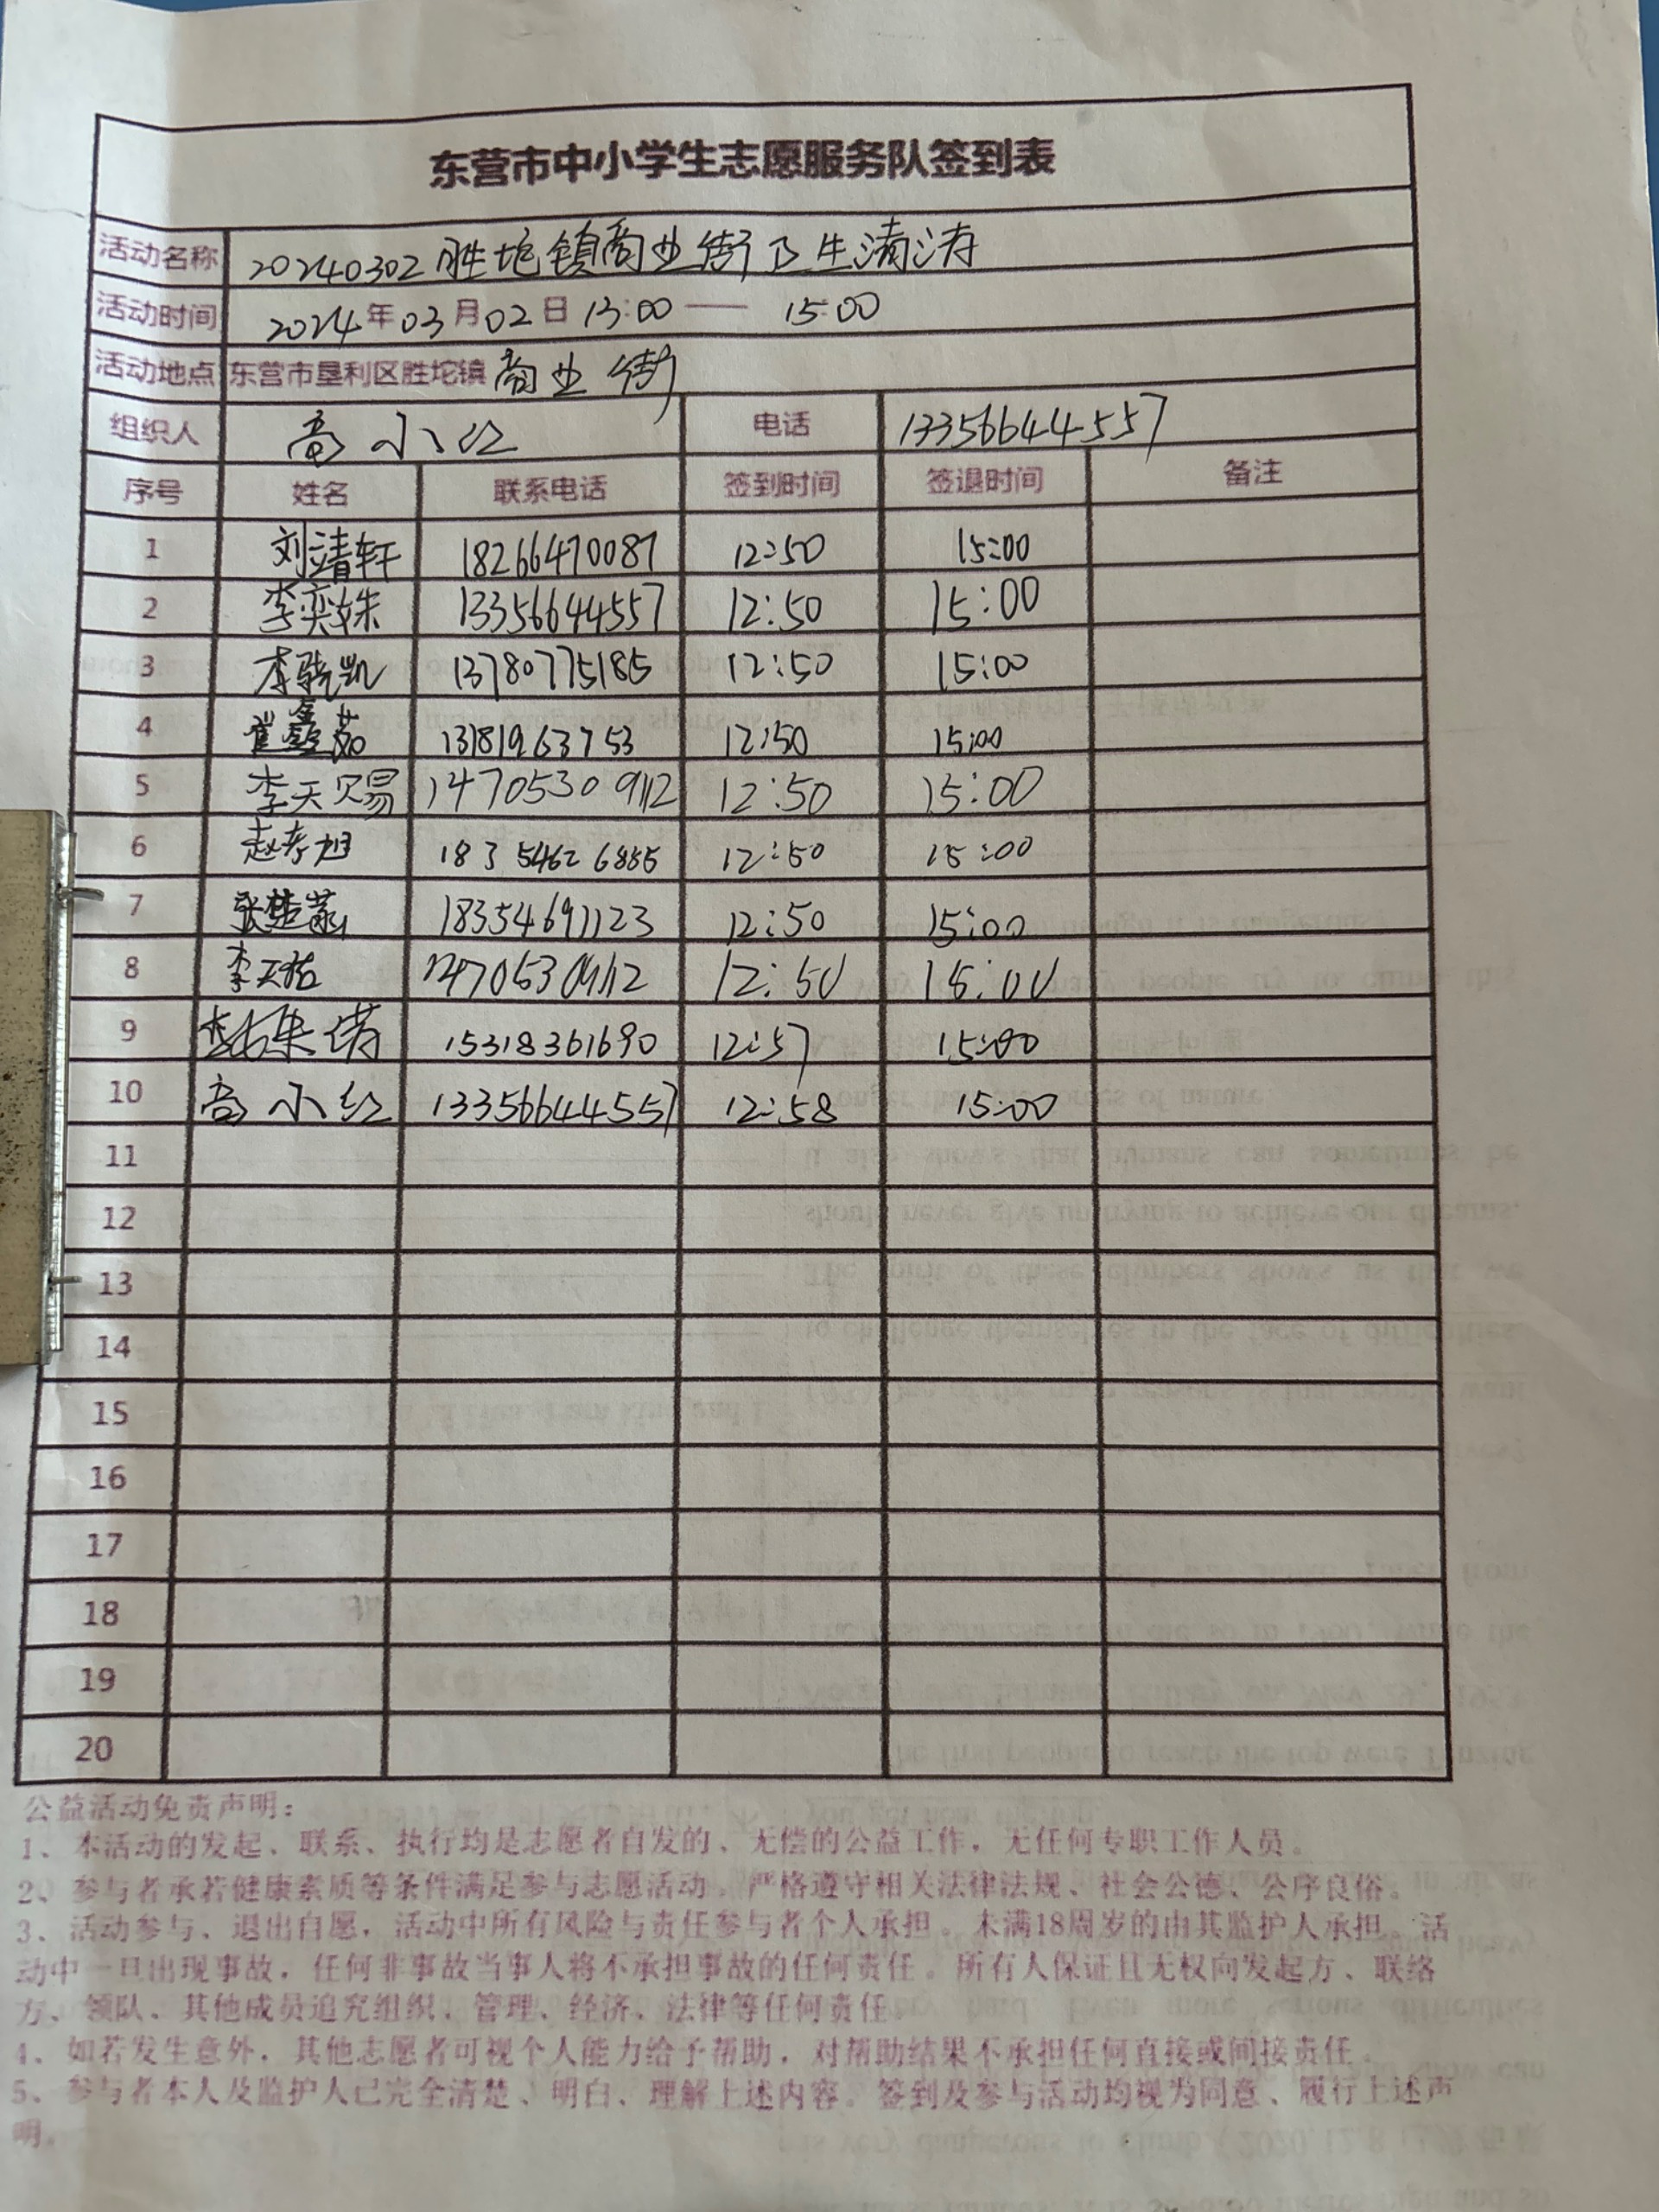 东营市中小学生志愿服务队签到表
活动名称 20240302胜坨镇商业街卫生清洁
活动时间 2024年03月02日 13:00 —— 15:00
活动地点 东营市垦利区胜坨镇 商业街
组织人 高小红 电话 13356644557
序号 姓名 联系电话 签到时间 签退时间 备注
1 刘靖轩 18266470087 12:50 15:00
2 李奕姝 13356644557 12:50 15:00
3 李骁凯 13780775185 12:50 15:00
4 崔鑫茹 13181963753 12:50 15:00
5 李天赐 14705309112 12:50 15:00
6 赵孝旭 18354626855 12:50 15:00
7 张楚菡 18354691123 12:50 15:00
8 李天祜 14705309112 12:50 15:00
9 15318361690 12:57 15:00
10 高小红 13356644557 12:58 15:00
11
12
13
14
15
16
17
18
19
20
公益活动免责声明：
1、本活动的发起、联系、执行均是志愿者自发的、无偿的公益工作，无任何专职工作人员。
2、参与者承若健康素质等条件满足参与志愿活动，严格遵守相关法律法规、社会公德、公序良俗。
3、活动参与、退出自愿，活动中所有风险与责任参与者个人承担。未满18周岁的由其监护人承担。活
动中一旦出现事故，任何非事故当事人将不承担事故的任何责任。所有人保证且无权向发起方、联络
方、领队、其他成员追究组织、管理、经济、法律等任何责任。
4、如若发生意外，其他志愿者可视个人能力给予帮助，对帮助结果不承担任何直接或间接责任。
5、参与者本人及监护人已完全清楚、明白、理解上述内容。签到及参与活动均视为同意、履行上述声
明。